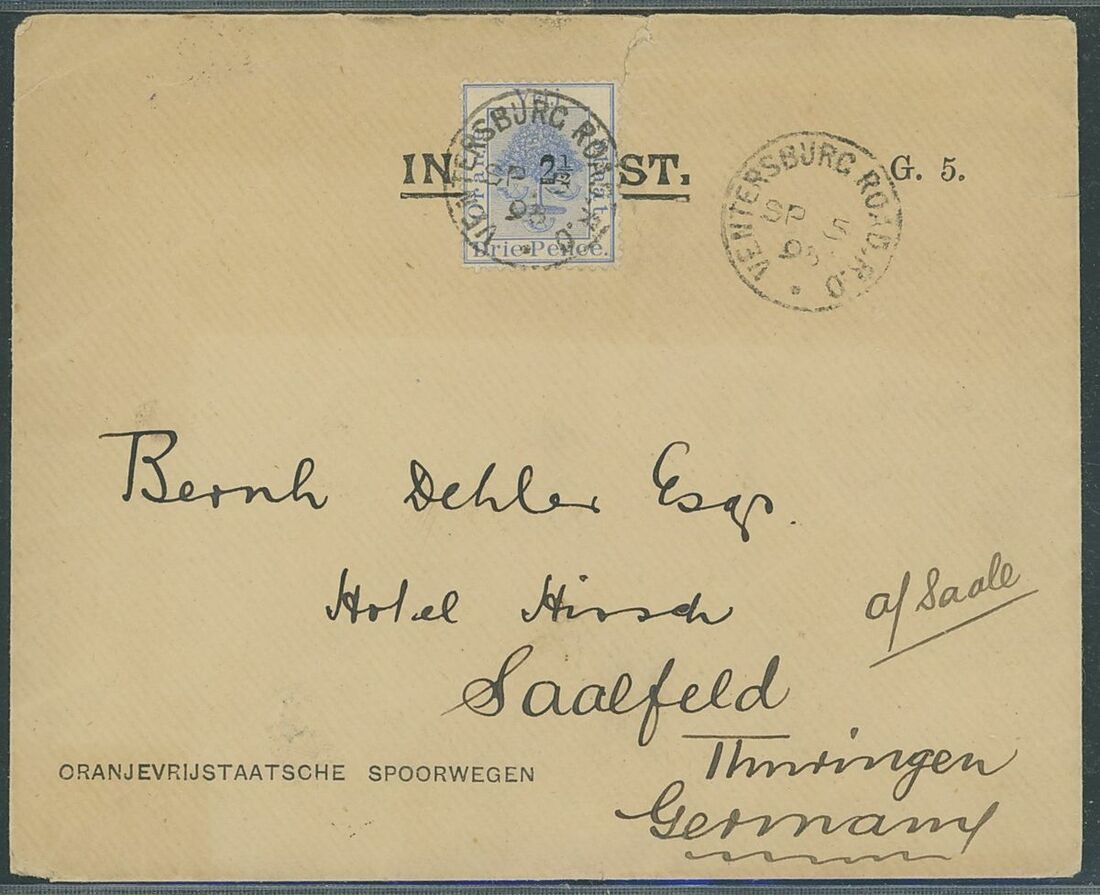 IN ST. G. 5.
2½
Drie Pence.
VENTERSBURG ROAD. R.O
SP 5
VENTERSBURG ROAD. R.O
SP 5
Bernh Dehler Esqr.
Hotel Hirsch
a/ Saale
Saalfeld
Thuringen
Germany
ORANJEVRIJSTAATSCHE SPOORWEGEN